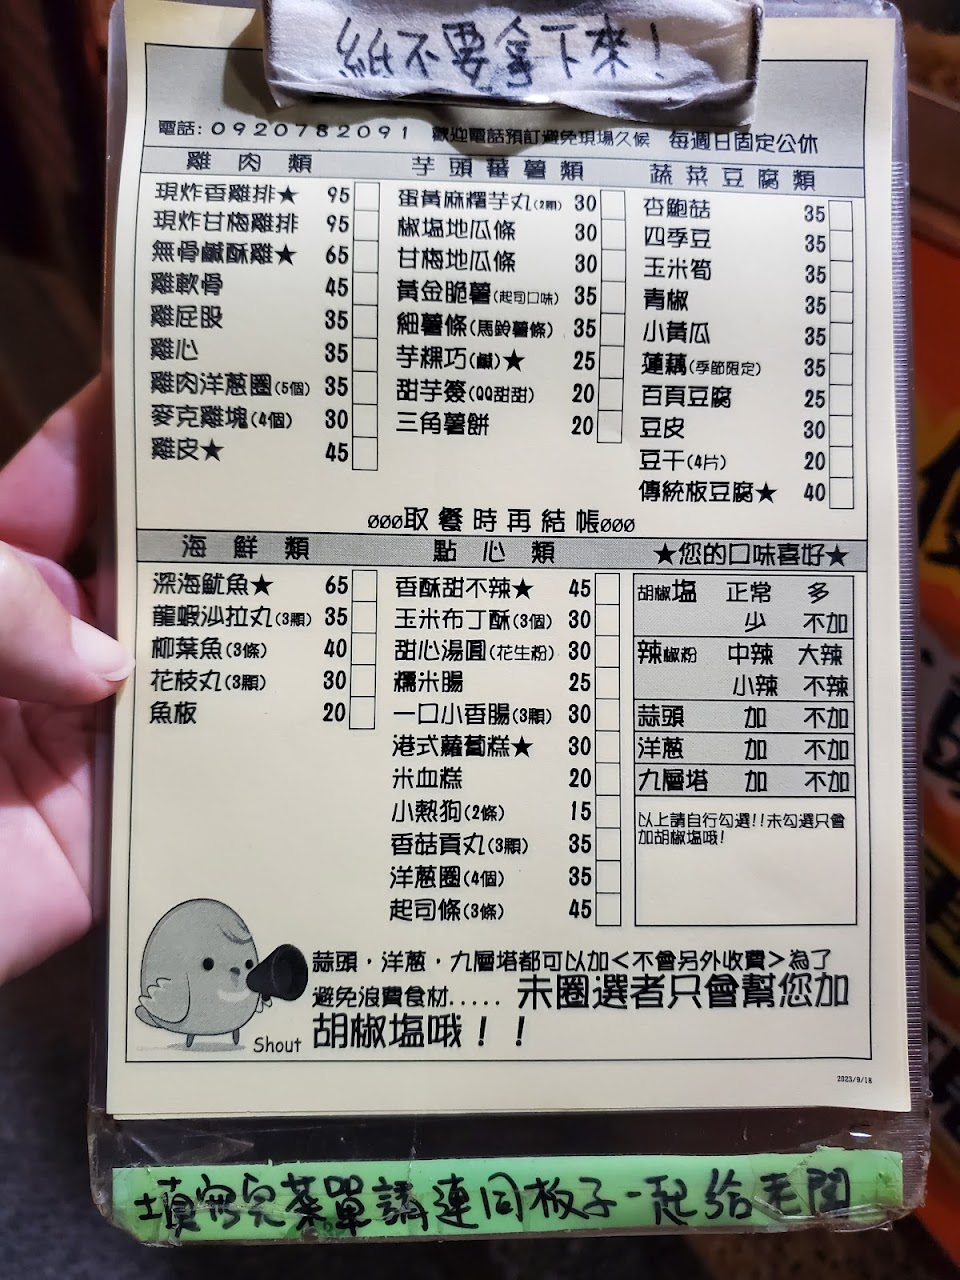 紙不要拿下來！
電話：0920782091 歡迎電話預訂避免現場久候 每週日固定公休
雞肉類
現炸香雞排★ 95
現炸甘梅雞排 95
無骨鹹酥雞★ 65
雞軟骨 45
雞屁股 35
雞心 35
雞肉洋蔥圈(5個) 35
麥克雞塊(4個) 30
雞皮★ 45
芋頭蕃薯類
蛋黃麻糬芋丸(2顆) 30
椒塩地瓜條 30
甘梅地瓜條 30
黃金脆薯(起司口味) 35
細薯條(馬鈴薯條) 35
芋粿巧(鹹)★ 25
甜芋簽(QQ甜甜) 20
三角薯餅 20
蔬菜豆腐類
杏鮑菇 35
四季豆 35
玉米筍 35
青椒 35
小黃瓜 35
蓮藕(季節限定) 35
百頁豆腐 25
豆皮 30
豆干(4片) 20
傳統板豆腐★ 40
ØØØ取餐時再結帳ØØØ
海鮮類
深海魷魚★ 65
龍蝦沙拉丸(3顆) 35
柳葉魚(3條) 40
花枝丸(3顆) 30
魚板 20
點心類
香酥甜不辣★ 45
玉米布丁酥(3個) 30
甜心湯圓(花生粉) 30
糯米腸 25
一口小香腸(3顆) 30
港式蘿蔔糕★ 30
米血糕 20
小熱狗(2條) 15
香菇貢丸(3顆) 35
洋蔥圈(4個) 35
起司條(3條) 45
★您的口味喜好★
胡椒塩 正常 多
少 不加
辣椒粉 中辣 大辣
小辣 不辣
蒜頭 加 不加
洋蔥 加 不加
九層塔 加 不加
以上請自行勾選!!未勾選只會
加胡椒塩哦!
蒜頭．洋蔥．九層塔都可以加<不會另外收費>為了
避免浪費食材..... 未圈選者只會幫您加
Shout 胡椒塩哦！！
2023/9/18
填寫完菜單請連同板子一起給老闆